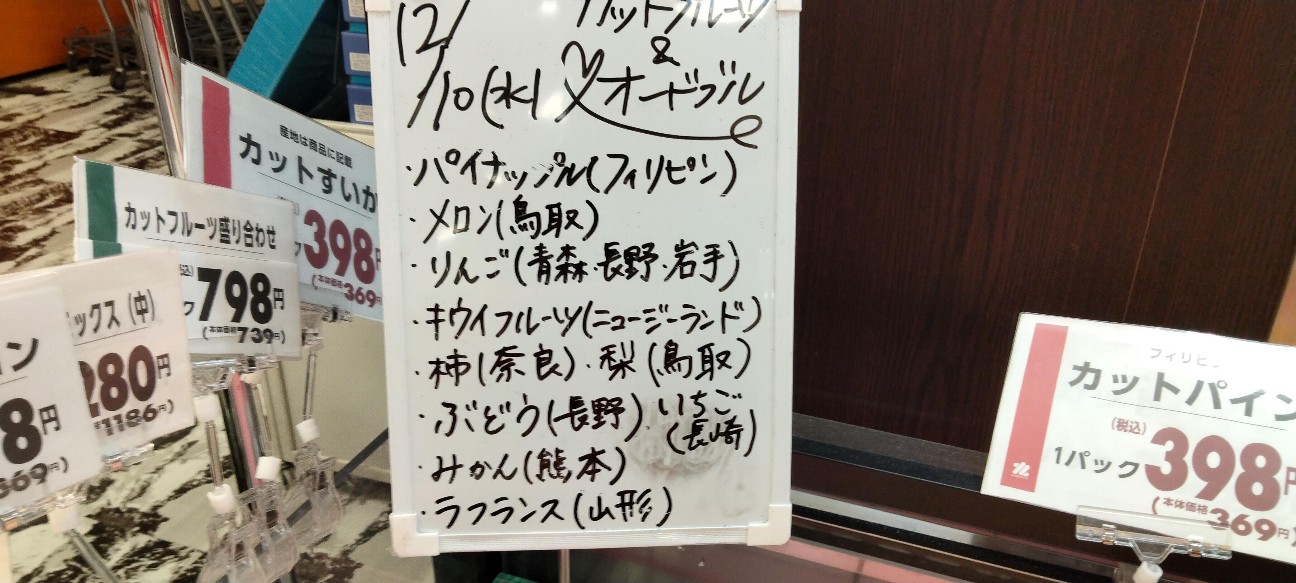 12/10(水)
カットフルーツ
&
オードブル
・パイナップル(フィリピン)
・メロン(鳥取)
・りんご(青森・長野・岩手)
・キウイフルーツ(ニュージーランド)
・柿(奈良)・梨(鳥取)
・ぶどう(長野)・いちご(長崎)
・みかん(熊本)
・ラフランス(山形)
産地は商品に記載
カットすいか
398円
(本体価格369円)
カットフルーツ盛り合わせ
798円
(本体価格739円)
ックス(中)
280円
1186円)
ン
8円
369円)
フィリピン
カットパイン
(税込)
1パック398円
(本体価格369円)